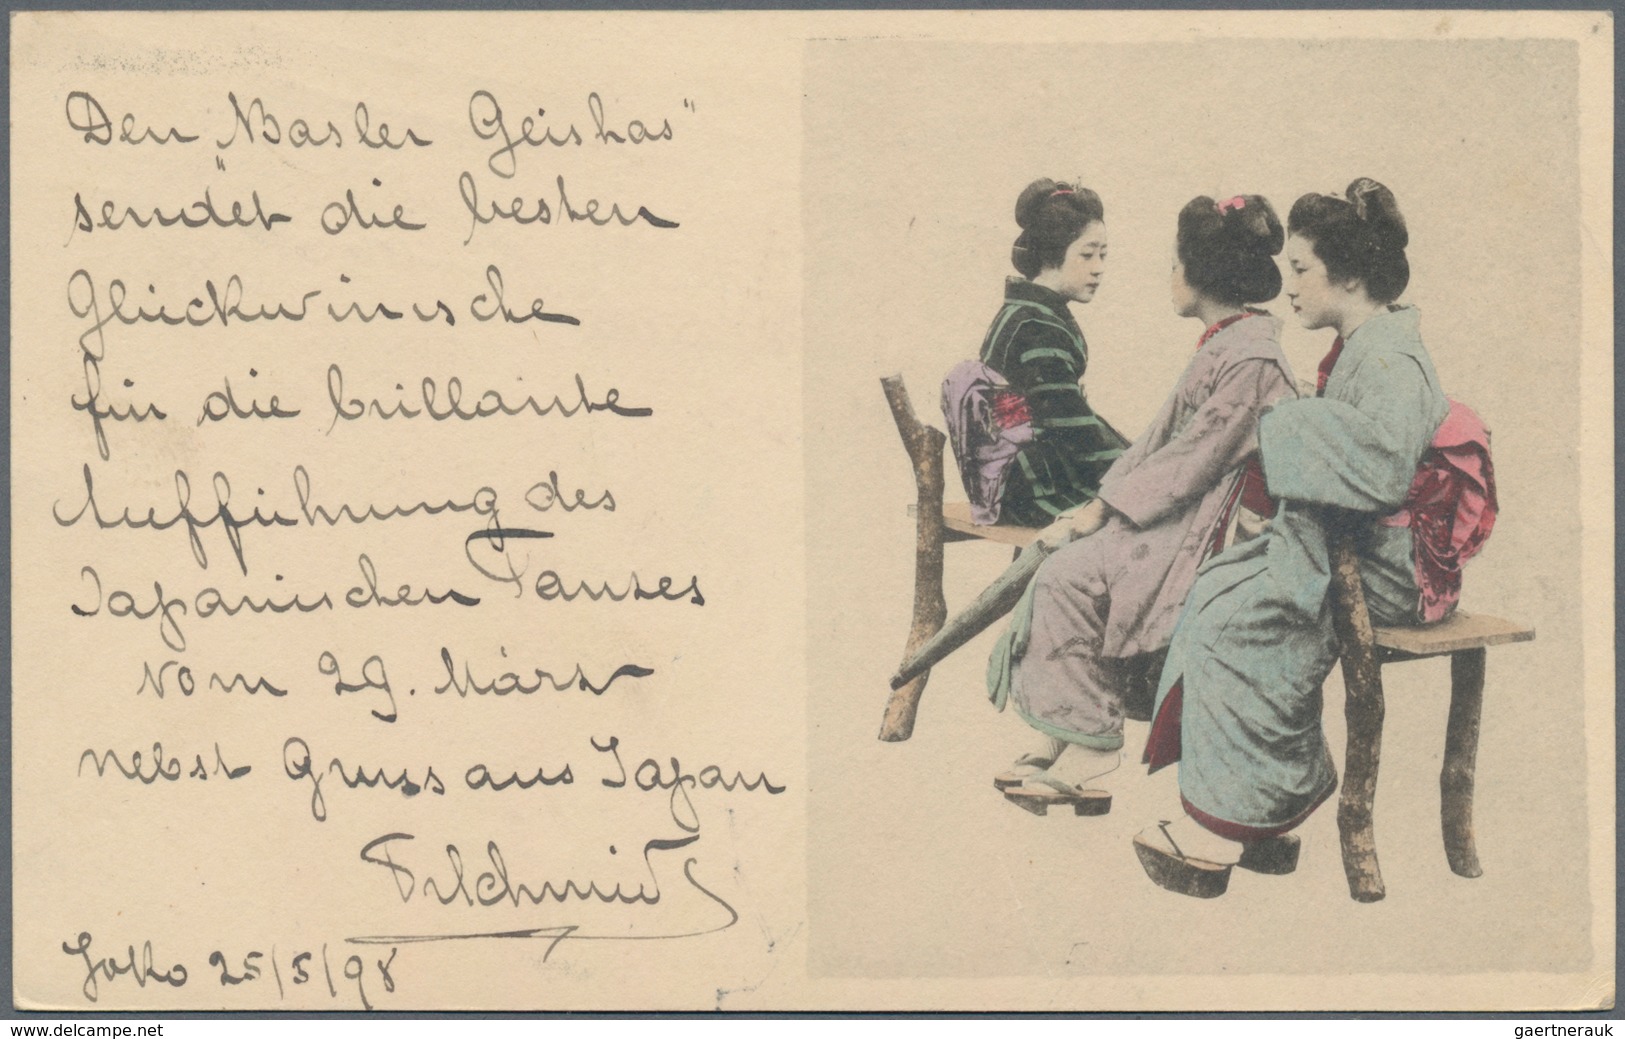 Den „Basler Geishas"
sendet die besten
Glückwünsche
für die brillante
Aufführung des
Japanischen Tanzes
vom 29. März
nebst Gruss aus Japan
Yoko 25/5/98
www.delcampe.net
gaertnerauk